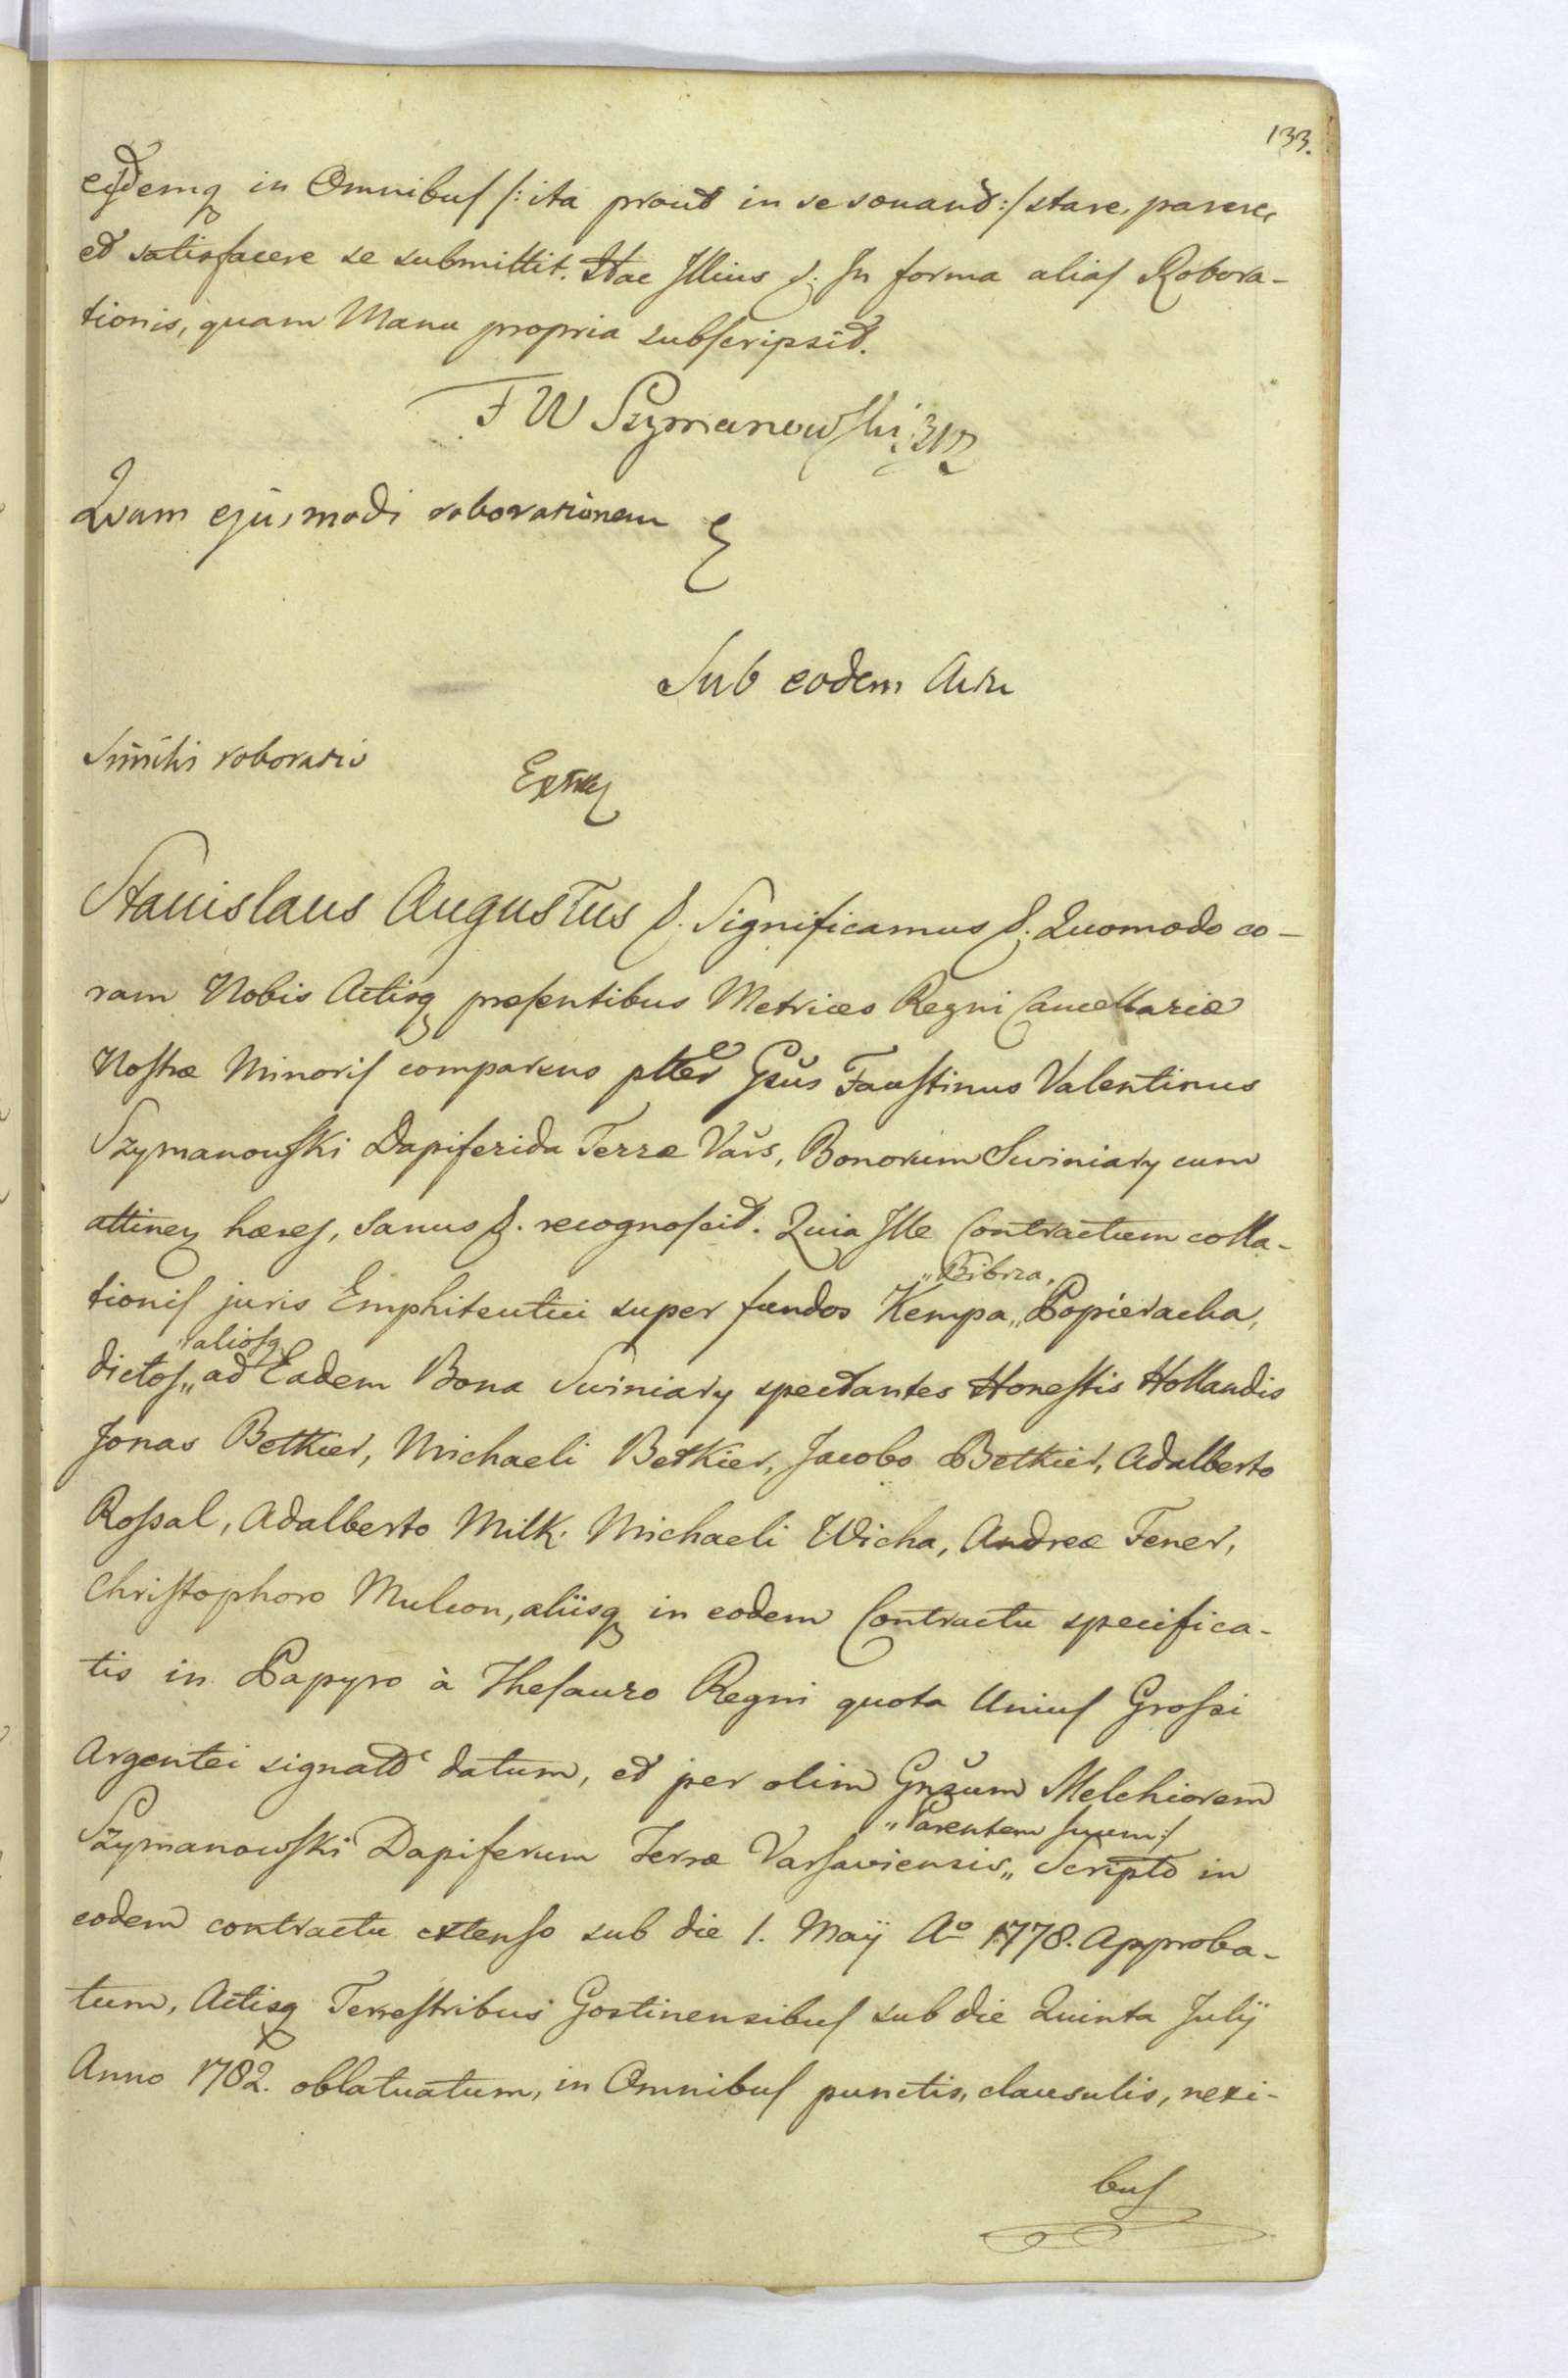 133.
eijdemq in Omnibus /: ita prout in se sonand :/ stare, parere,
et satisfacere se submittit. Hac Illius &. In forma alias Robora-
tionis, quam Manu propria subscripsit.
F W Szymanowski
Quam ejusmodi roborationem &
Sub eodem Actu
Similis roboratio
Extrz
Stanislaus Augustus &. Significamus &. Quomodo co-
ram Nobis Actisq præsentibus Metrices Regni Cancellariæ
Nostræ Minoris comparens plter Gsus Faustinus Valentinus
Szymanowski Dapiferida Terræ Vars, Bonorum Swiniary cum
attinen hæres, Sanus &. recognoscit. Quia Ille Contractum colla-
"Bibrza,
tionis juris Emphiteutici super fundos Kempa," Popieracha,
"aliosq
dictos," ad Eadem Bona Swiniary spectantes Honestis Hollandis
Jonas Betkier, Michaeli Betkier, Jacobo Betkier, Adalberto
Rossal, Adalberto Milk. Michaeli Wicha, Andreæ Fener,
Christophoro Mulcon, aliisq in eodem Contractu specifica-
tis in Papyro à Thesauro Regni quota Unius Grossi
Argentei signatæ datum, et per olim Gnsum Melchiorem
"Parentem suum:/
Szymanowski Dapiferum Terræ Varsaviensis," Scripto in
eodem contractu extenso sub die 1. Maij Aº 1778. Approba-
tum, Actisq Terrestribus Gostinensibus sub die Quinta Julij
Anno 1782. oblatuatum, in Omnibus punctis, clausulis, nexi-
bus